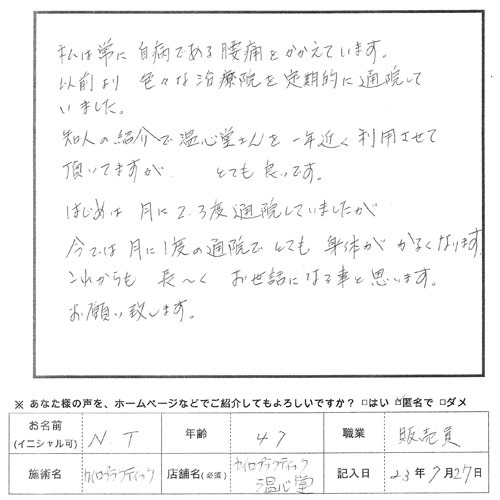 私は常に 自病である腰痛をかかえています。
以前より 色々な治療院を定期的に通院して
いました。
知人の紹介で温心堂さんを 一年近く利用させて
頂いてますが とても良いです。
はじめは 月に2.3度通院していましたが
今では月に1度の通院で とても 身体が かるくなります。
これからも 長〜く お世話になる事と思います。
お願い致します。
※ あなた様の声を、ホームページなどでご紹介してもよろしいですか？ □はい ☑匿名で □ダメ
お名前 (イニシャル可) N.T 年齢 47 職業 販売員
施術名 カイロプラクティック 店舗名(必須) カイロプラクティック 温心堂 記入日 23年7月27日